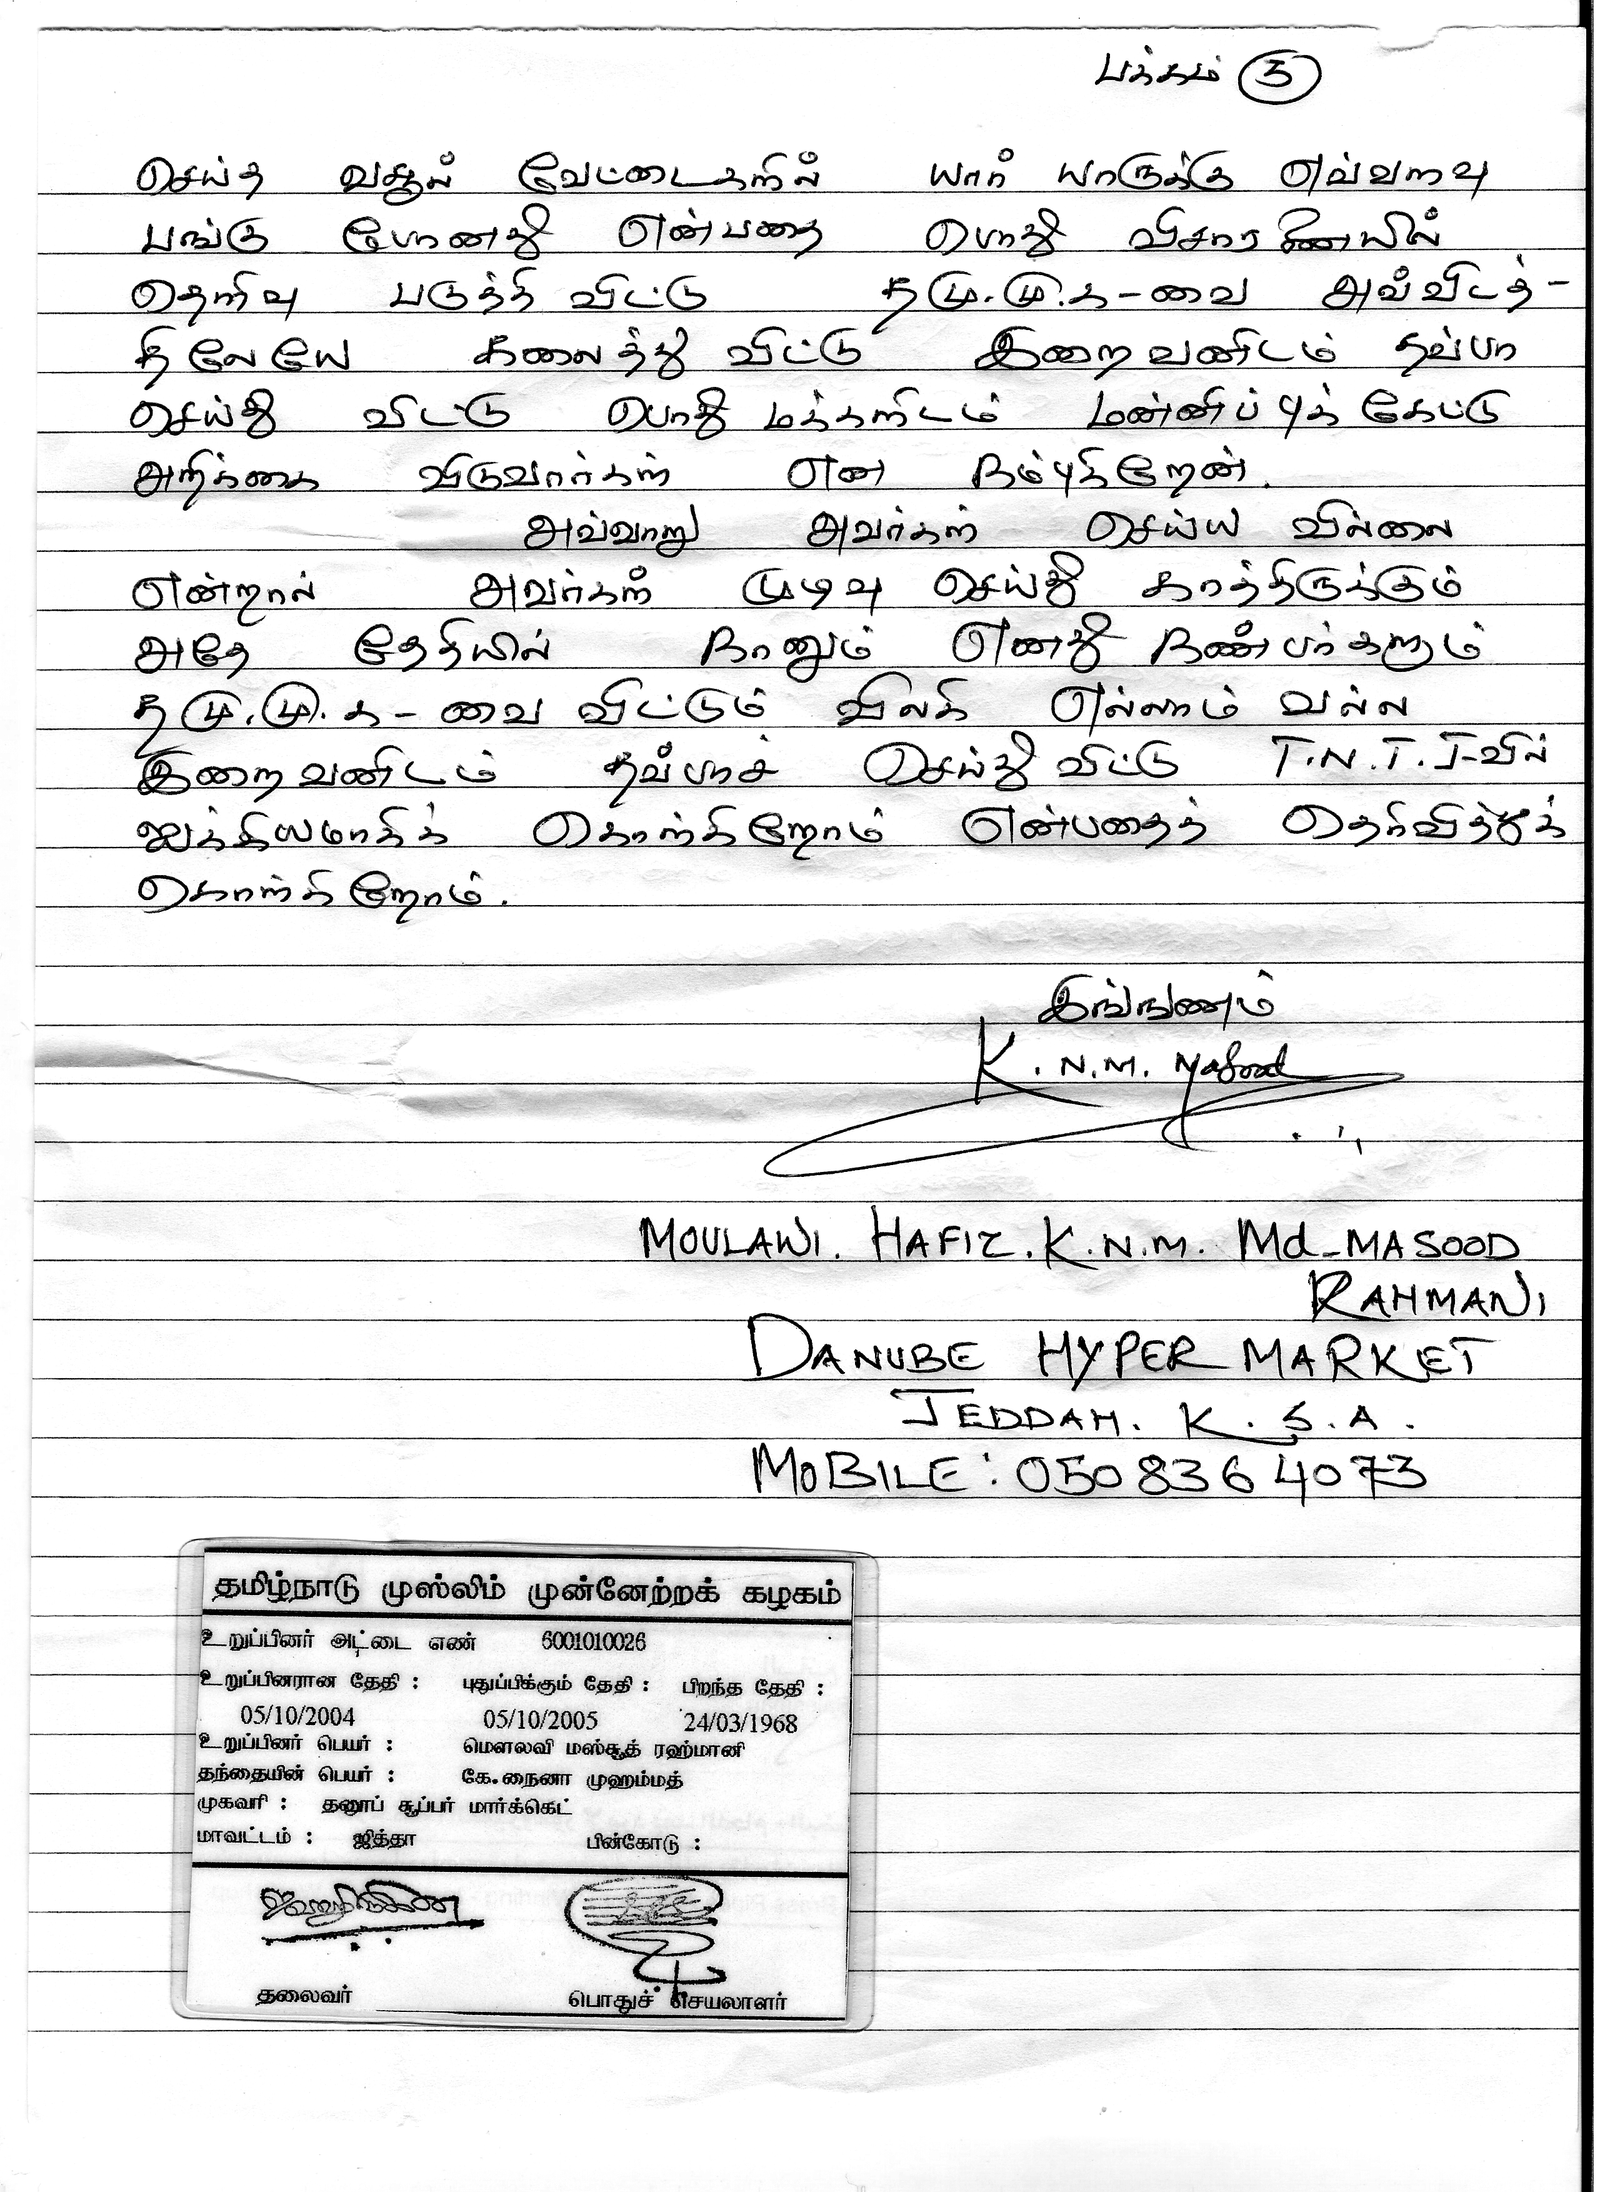 பக்கம் 3
செய்த வசூல் வேட்டைகளில் யார் யாருக்கு எவ்வளவு
பங்கு போனது என்பதை பொது விசாரணையில்
தெளிவு படுத்தி விட்டு த.மு.மு.க-வை அவ்விடத்-
திலேயே கலைத்து விட்டு இறைவனிடம் தவ்பா
செய்து விட்டு பொது மக்களிடம் மன்னிப்புக் கேட்டு
அறிக்கை விடுவார்கள் என நம்புகிறேன்.
அவ்வாறு அவர்கள் செய்ய வில்லை
என்றால் அவர்கள் முடிவு செய்து காத்திருக்கும்
அதே தேதியில் நானும் எனது நண்பர்களும்
த.மு.மு.க-வை விட்டும் விலகி எல்லாம் வல்ல
இறைவனிடம் தவ்பாச் செய்து விட்டு T.N.T.J-வில்
ஐக்கியமாகிக் கொள்கிறோம் என்பதைத் தெரிவித்துக்
கொள்கிறோம்.
இங்ஙணம்
K.N.M. Masood
MOULAWI. HAFIZ. K.N.M. Md-MASOOD
RAHMANI
DANUBE HYPER MARKET
JEDDAH. K.S.A.
MOBILE: 0508364073
தமிழ்நாடு முஸ்லிம் முன்னேற்றக் கழகம்
உறுப்பினர் அட்டை எண் 6001010026
உறுப்பினரான தேதி : புதுப்பிக்கும் தேதி : பிறந்த தேதி :
05/10/2004 05/10/2005 24/03/1968
உறுப்பினர் பெயர் : மௌலவி மஸ்சூத் ரஹ்மானி
தந்தையின் பெயர் : கே.நைனா முஹம்மத்
முகவரி : தனூப் சூப்பர் மார்க்கெட்
மாவட்டம் : ஜித்தா பின்கோடு :
தலைவர் பொதுச் செயலாளர்